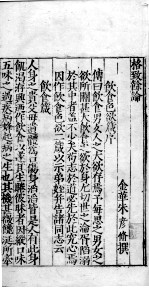 格致餘論
金華朱彥脩撰
飲食色欲箴序
傳曰飲食男女人之大欲存焉予每思之男女之
欲所關甚大飲食之欲於身尤切世之淪胥陷溺
於其中者蓋不少矣苟志於道必先於此究心焉
因作飲食色欲二箴以示弟姪并告諸同志云
飲食箴
人身之貴父母遺體為口傷身滔滔皆是人有此身
飢渴洊興乃作飲食以遂其生睠彼昧者因縱口味
五味之過疾病蜂起病之生也其機甚微饞涎所牽